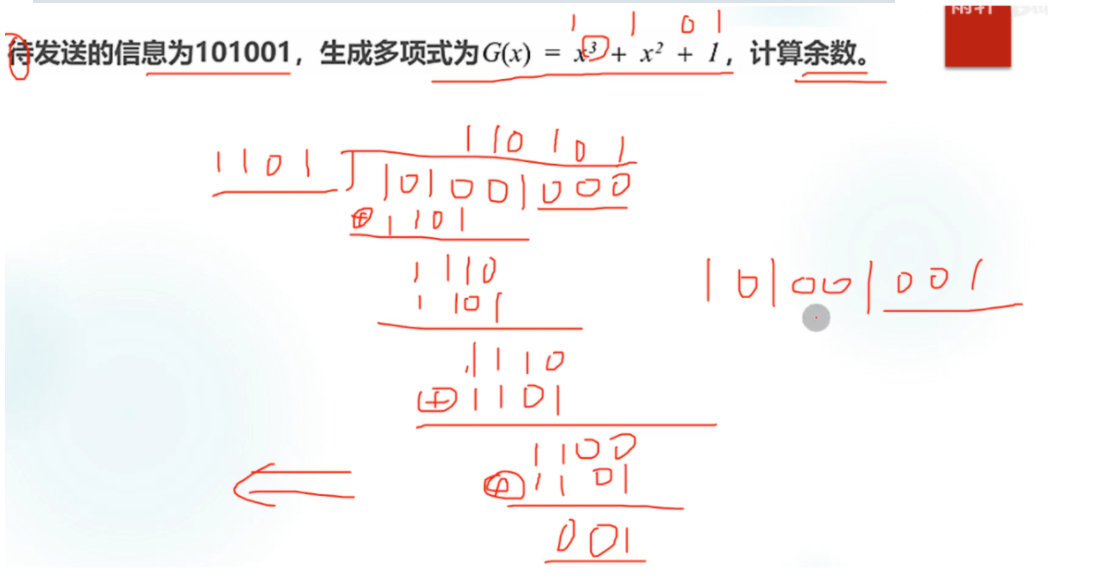 1 1 0 1
待发送的信息为101001，生成多项式为G(x) = x³ + x² + 1，计算余数。
110101
1101 101001000
⊕1101
1110
1101
1110
⊕1101
1100
⊕1101
001
101001001